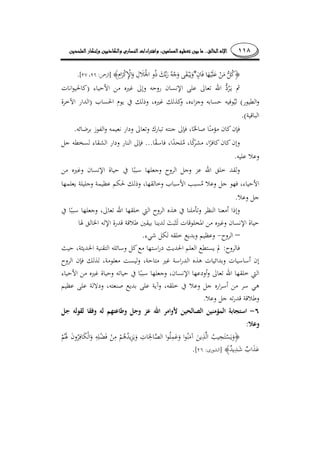 ١١٨ الإله الخالق.. ما بين تعظيم المسلمين، وافتراءات النصارى والملحدين وإنكار الملحدين
﴿كُلُّ مَنْ عَلَيْهَا فَانٍ وَيَبْقَى وَجْهُ رَبِّكَ ذُو الْجَلَالِ وَالْإِكْرَامِ﴾ [الرحمن: ٢٦، ٢٧].
ثم يَرُدُّ الله تعالى على الإنسان روحه وإلى غيره من الأحياء (كالحيوانات
والطيور) ليُوفيه حسابه وجزاءه، وكذلك غيره، وذلك في يوم الحساب (الدار الآخرة
الباقية).
فإن كان مؤمنًا صالحًا، فإلى جنته تبارك وتعالى ودار نعيمه والفوز برضاه.
وإن كان كافرًا، مشركًا، مُلحدًا، فاسقًا... فإلى النار ودار الشقاء لسخطه جل
وعلا عليه.
ولقد خلق الله عز وجل الروح وجعلها سببًا في حياة الإنسان وغيره من
الأحياء، فهو جل وعلا مُسبب الأسباب وخالقها، وذلك لحكم عظيمة وجليلة يعلمها
جل وعلا.
وإذا أمعنا النظر وتأملنا في هذه الروح التي خلقها الله تعالى، وجعلها سببًا في
حياة الإنسان وغيره من المخلوقات لثبتت لدينا بيقين طلاقة قدرة الإله الخالق لها
– الروح- وعظيم وبديع خلقه لكل شيء.
فالروح: لم يستطع العلم الحديث دراستها مع كل وسائله التقنية الحديثة، حيث
إن أساسيات وبدائيات هذه الدراسة غير متاحة، وليست معلومة، لذلك فإن الروح
التي خلقها الله تعالى وأودعها الإنسان، وجعلها سببًا في حياته وحياة غيره من الأحياء
هي سر من أسراره جل وعلا في خلقه، وآية على بديع صنعته، ودلالة على عظيم
وطلاقة قدرته جل وعلا.
٦- استجابة المؤمنين الصالحين لأوامر الله عز وجل وطاعتهم له وفقا لقوله جل
وعلا:
﴿وَيَسْتَجِيبُ الَّذِينَ آمَنُوا وَعَمِلُوا الصَّالِحَاتِ وَيَزِيدُهُمْ مِنْ فَضْلِهِ وَالْكَافِرُونَ لَهُمْ
عَذَابٌ شَدِيدٌ﴾ [الشورى: ٢٦].